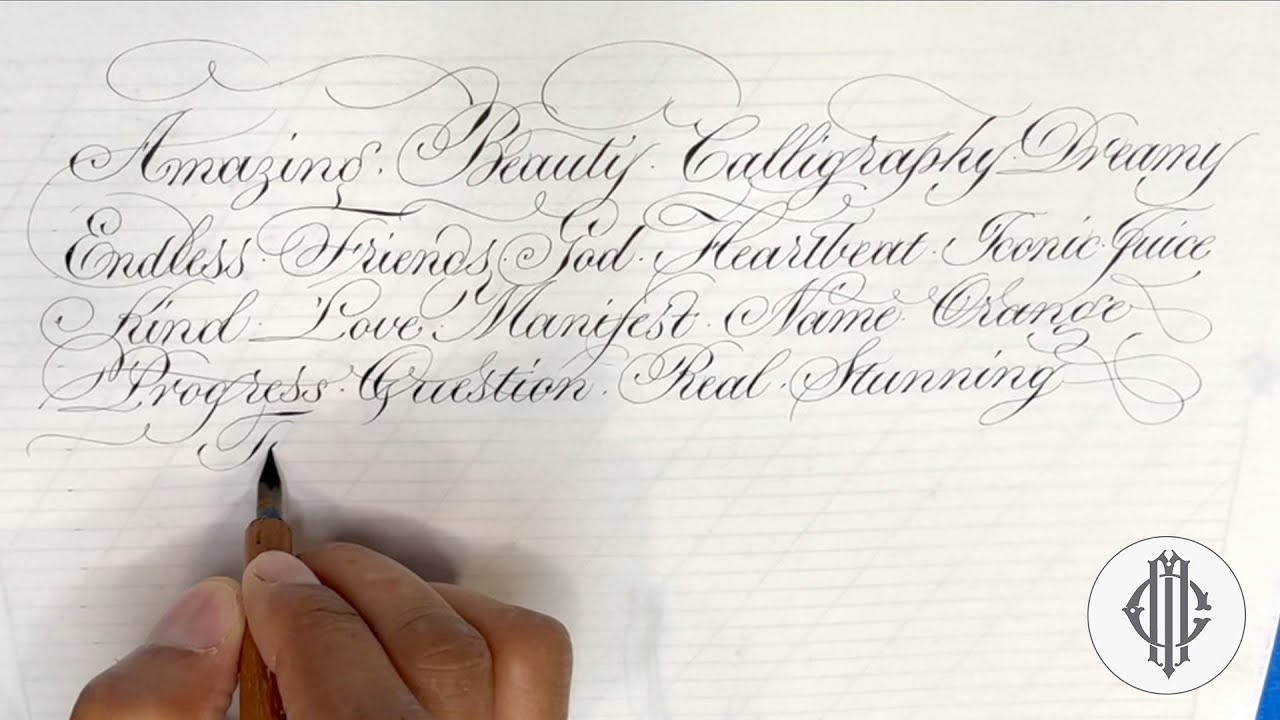 Amazing. Beauty. Calligraphy. Dreamy
Endless. Friends. God. Heartbeat. Iconic. Juice
Kind. Love. Manifest. Name. Orange
Progress. Question. Real. Stunning
T